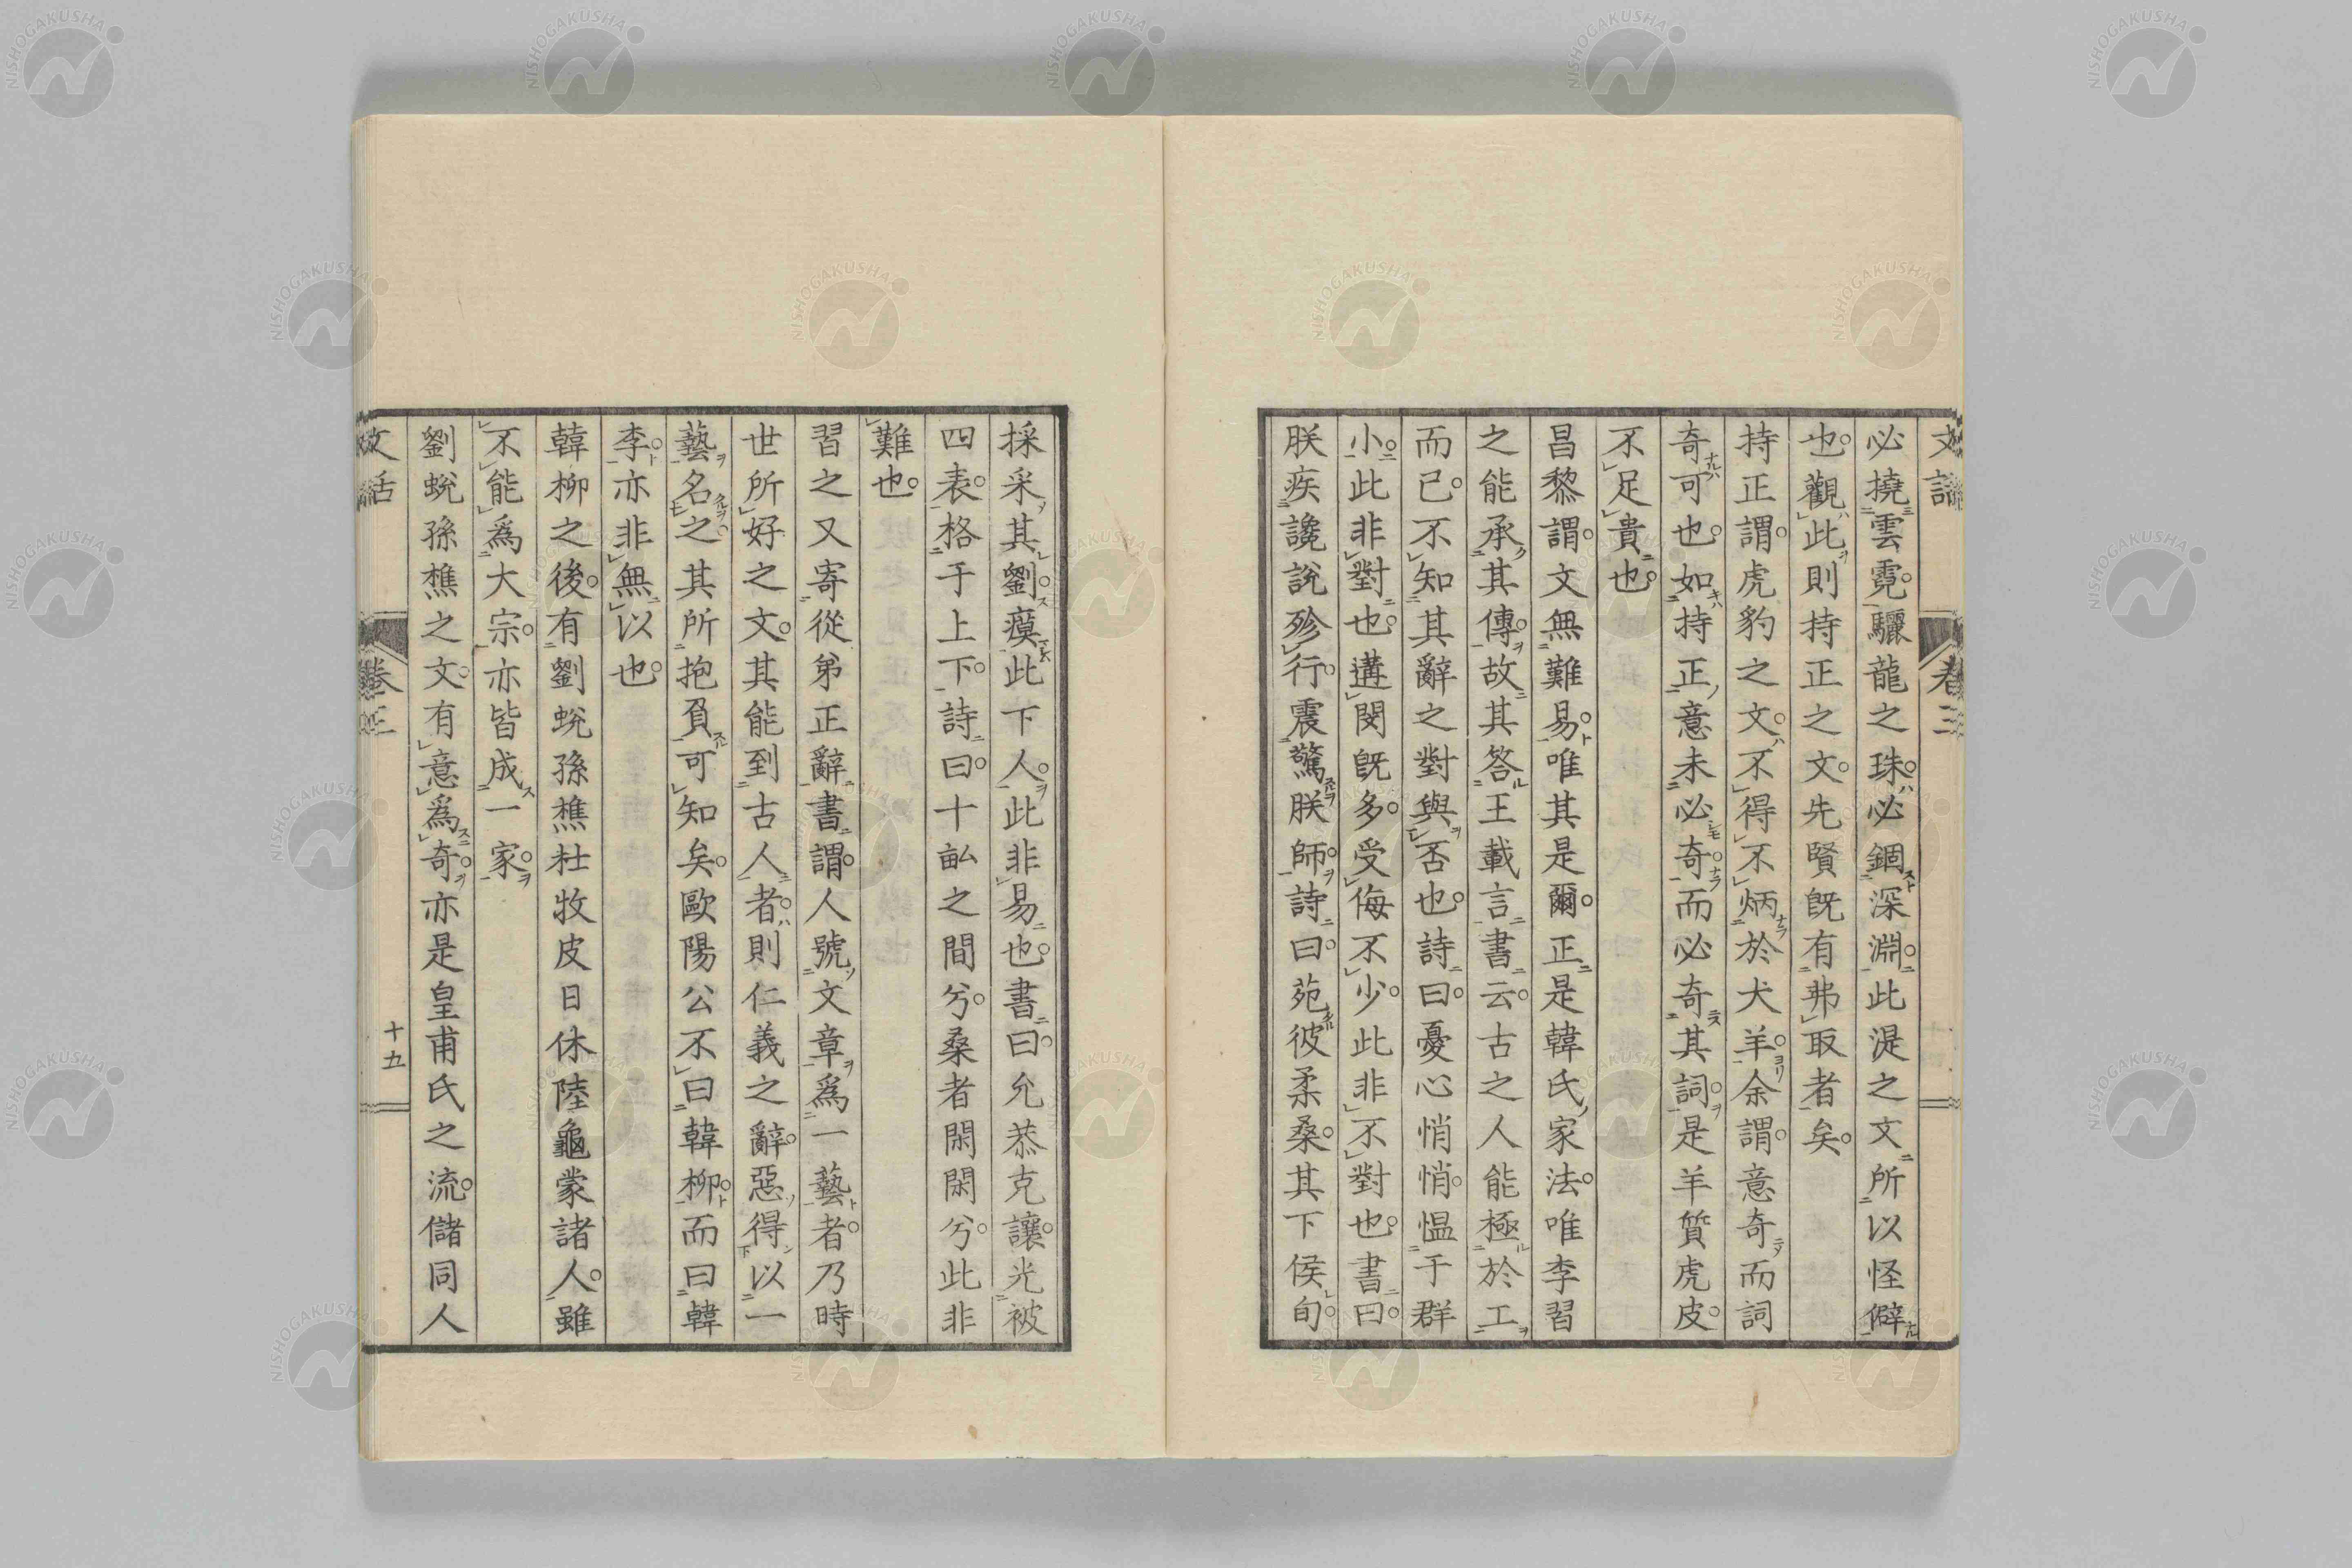 文話 卷三
必撓雲霓。驪龍之珠。必錮深淵。此湜之文所以怪僻
也。觀此則持正之文。先賢既有弗取者矣。
持正謂。虎豹之文。不得不炳於犬羊。余謂。意奇而詞
奇可也。如持正意未必奇。而必奇其詞。是羊質虎皮。
不足貴也。
昌黎謂。文無難易。唯其是爾。正是韓氏家法。唯李習
之能承其傳。故其答王載言書云。古之人能極於工
而已。不知其辭之對與否也。詩曰。憂心悄悄。愠于群
小。此非對也。遘閔既多。受侮不少。此非不對也。書曰。
朕疾讒說殄行。震驚朕師。詩曰。苑彼柔桑。其下侯旬。
採采其劉。瘼此下人。此非易也。書曰。允恭克讓。光被
四表。格于上下。詩曰。十畝之間兮。桑者閑閑兮。此非
難也。
習之又寄從弟正辭書謂。人號文章爲一藝者。乃時
世所好之文。其能到古人者。則仁義之辭。惡得以一
藝名之。其所抱負可知矣。歐陽公不曰韓柳。而曰韓
李。亦非無以也。
韓柳之後。有劉蛻孫樵杜牧皮日休陸龜蒙諸人。雖
不能爲大宗。亦皆成一家。
劉蛻孫樵之文。有意爲奇。亦是皇甫氏之流。儲同人
文話 卷三 十五
NISHOGAKUSHA